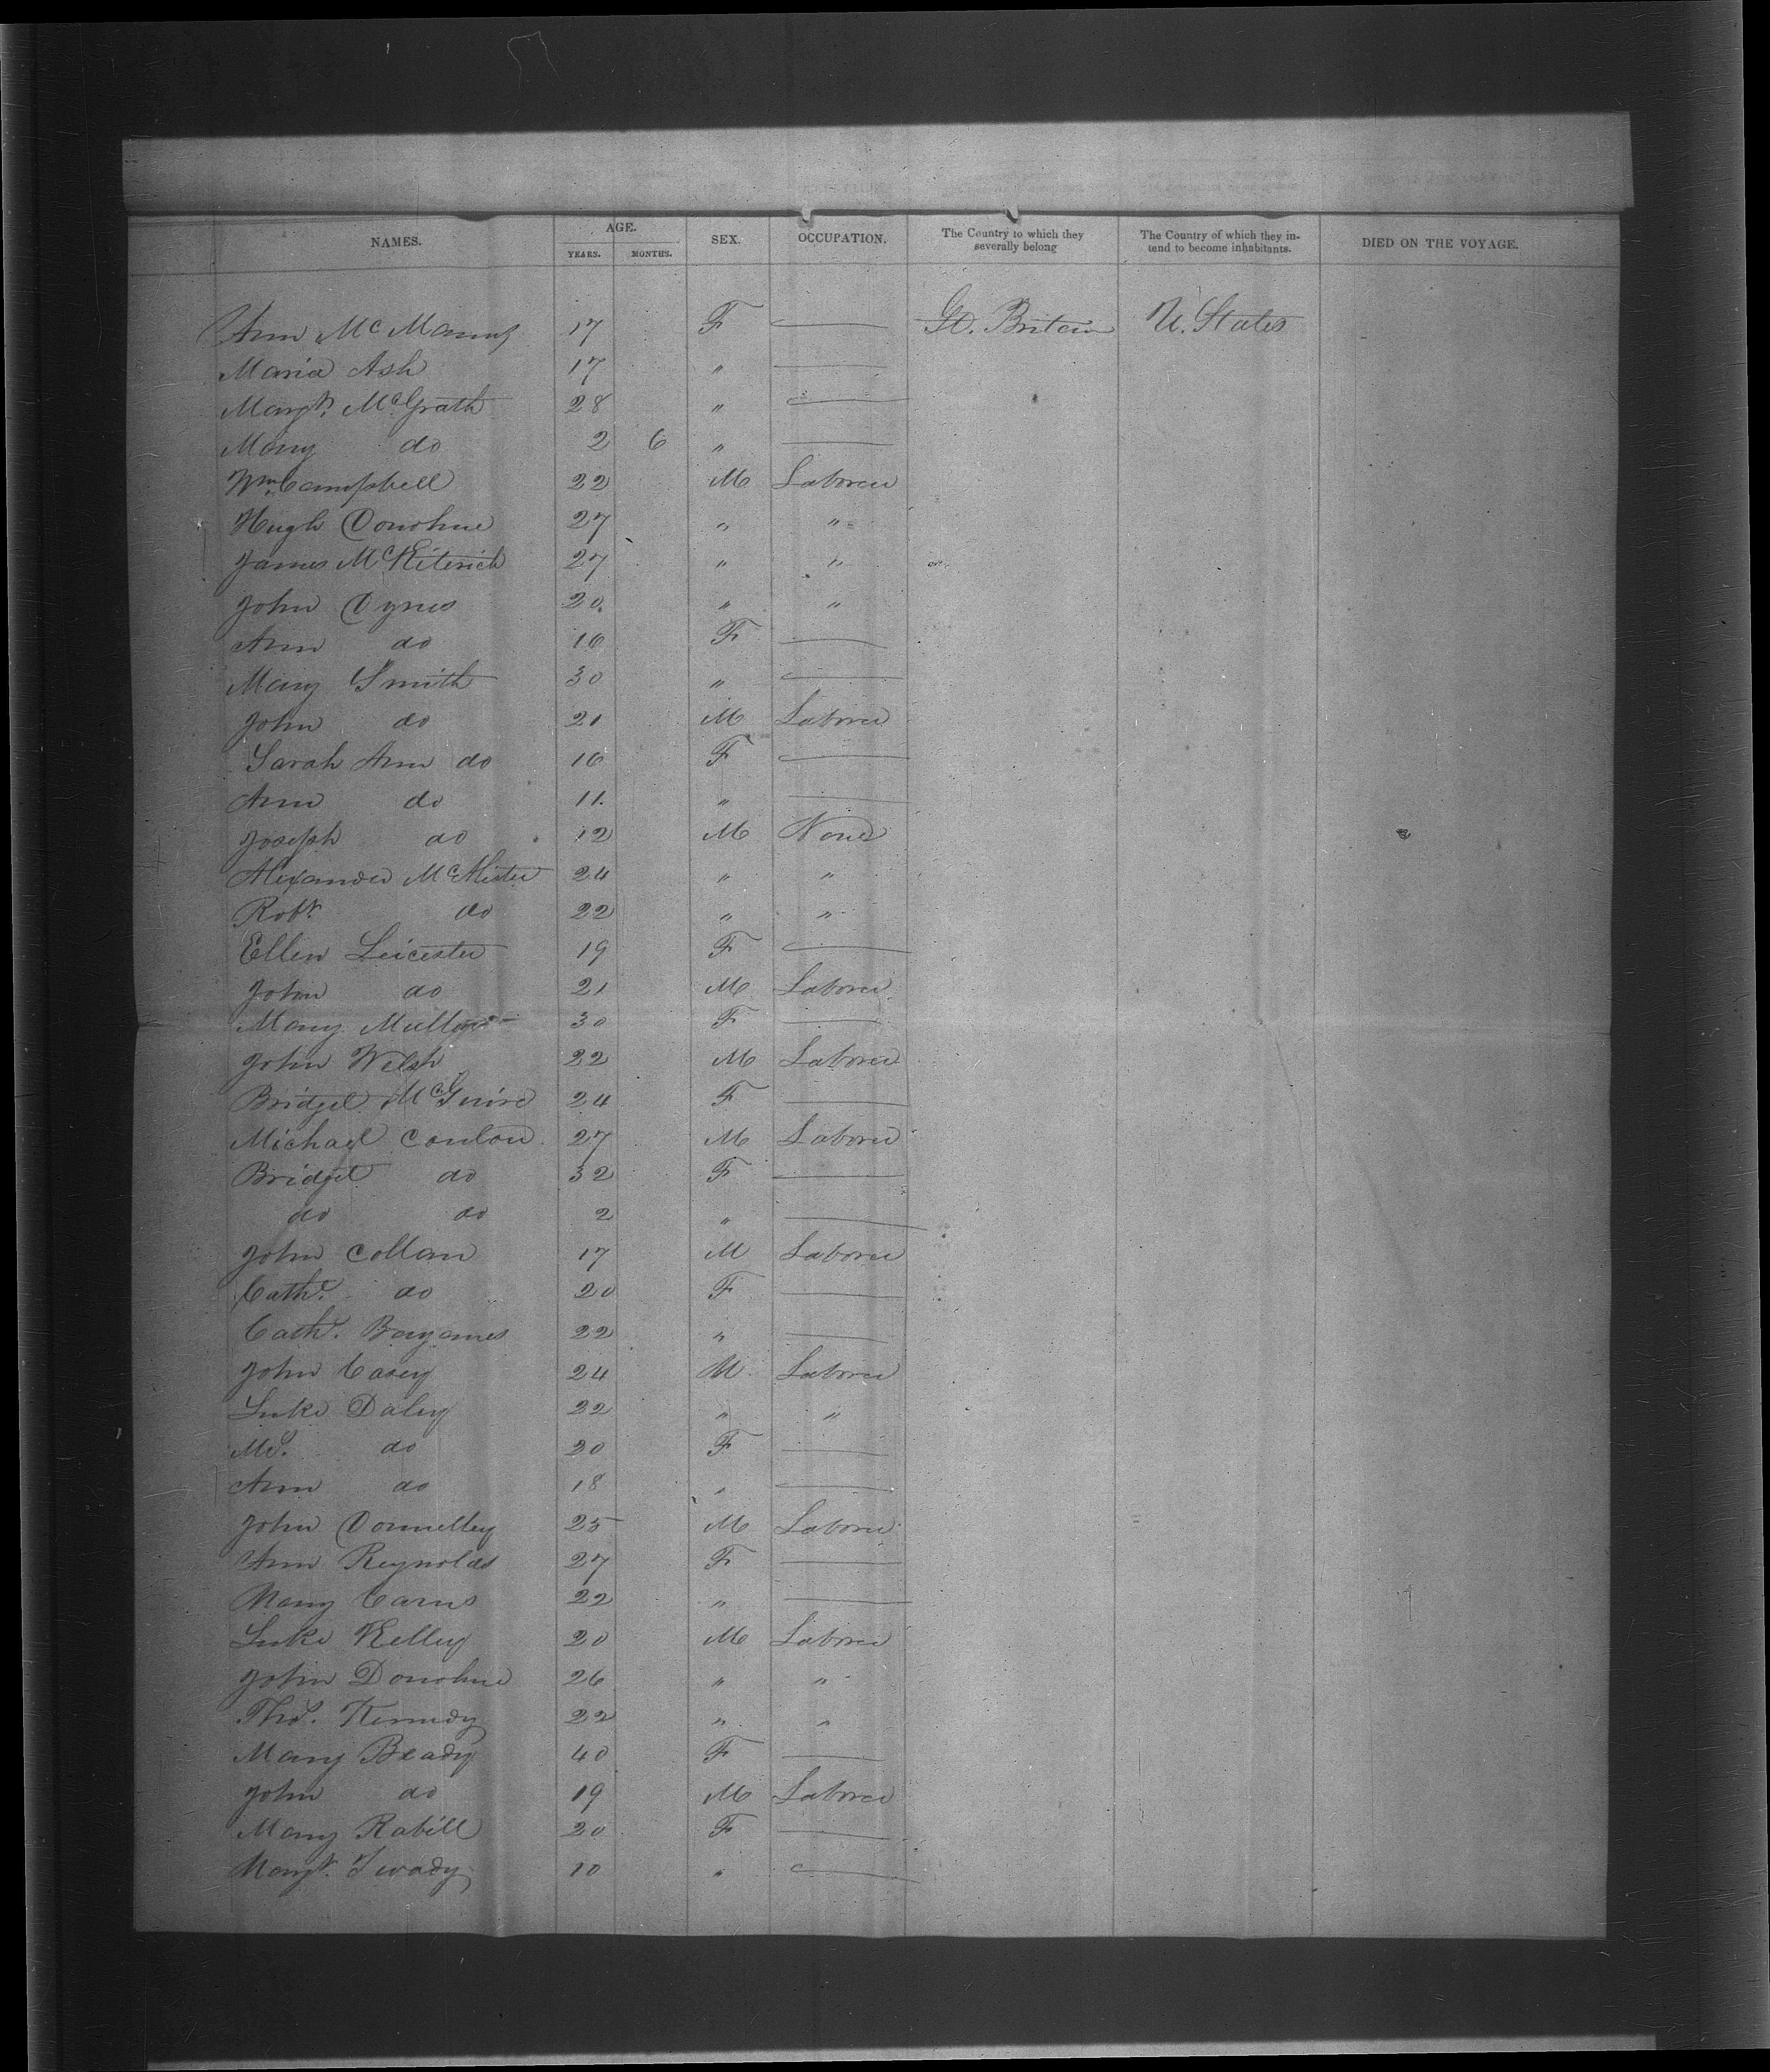 NAMES. AGE. YEARS. MONTHS. SEX. OCCUPATION. The Country to which they severally belong The Country of which they intend to become inhabitants. DIED ON THE VOYAGE.
Ann McManus 17 F — Gt. Britain U. States
Maria Ash 17 " —
Margt. McGrath 28 " —
Mary do 2 6 " —
Wm. Campbell 22 M Laborer
Hugh Donohue 27 " "
James McKiterick 27 " "
John Dynes 20 " "
Ann do 16 F —
Mary Smith 30 " —
John do 21 M Laborer
Sarah Ann do 16 F —
Ann do 11 " —
Joseph do 12 M None
Alexander McAlister 24 " "
Robt. do 22 " "
Ellen Leicester 19 F —
John do 21 M Laborer
Mary 30 F —
John Welsh 22 M Laborer
Bridget McGuire 24 F —
Michael Conlon 27 M Laborer
Bridget do 32 F —
do do 2 " —
John Collan 17 M Laborer
Cathe. do 20 F —
Cathe. 22 " —
John Casey 24 M Laborer
Luke Daley 22 " "
do 20 F —
Ann do 18 " —
John Donnelley 25 M Laborer
Ann Reynolds 27 F —
Mary Carns 22 " —
Luke Kelley 20 M Laborer
John Donohue 26 " "
Thos. Kennedy 22 " "
Mary Brady 40 F —
John do 19 M Laborer
Mary Rabill 20 F —
Margt. 10 " —